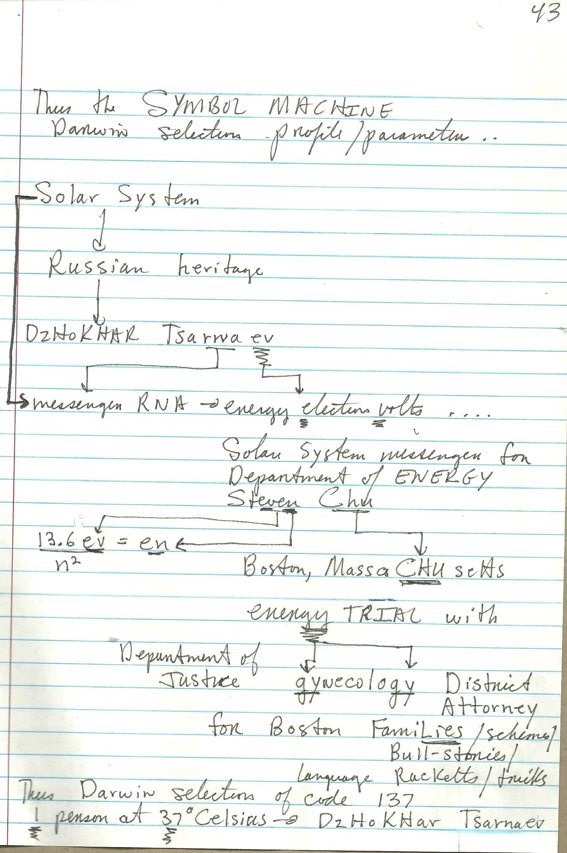 43
Thus the SYMBOL MACHINE
Darwin selection profile/parameter ..
Solar System
Russian heritage
DzHoKHAR Tsarnaev
messenger RNA → energy electron volts ....
Solar System messenger for
Department of ENERGY
Steven Chu
13.6 ev = en
n²
Boston, MassaCHUsetts
energy TRIAL with
Department of
Justice gynecology District
Attorney
for Boston FamiLies/schemes/
Bull-stories/
language Racketts/tricks
Thus Darwin selection of code 137
1 person at 37° Celsius → DzHoKHar Tsarnaev